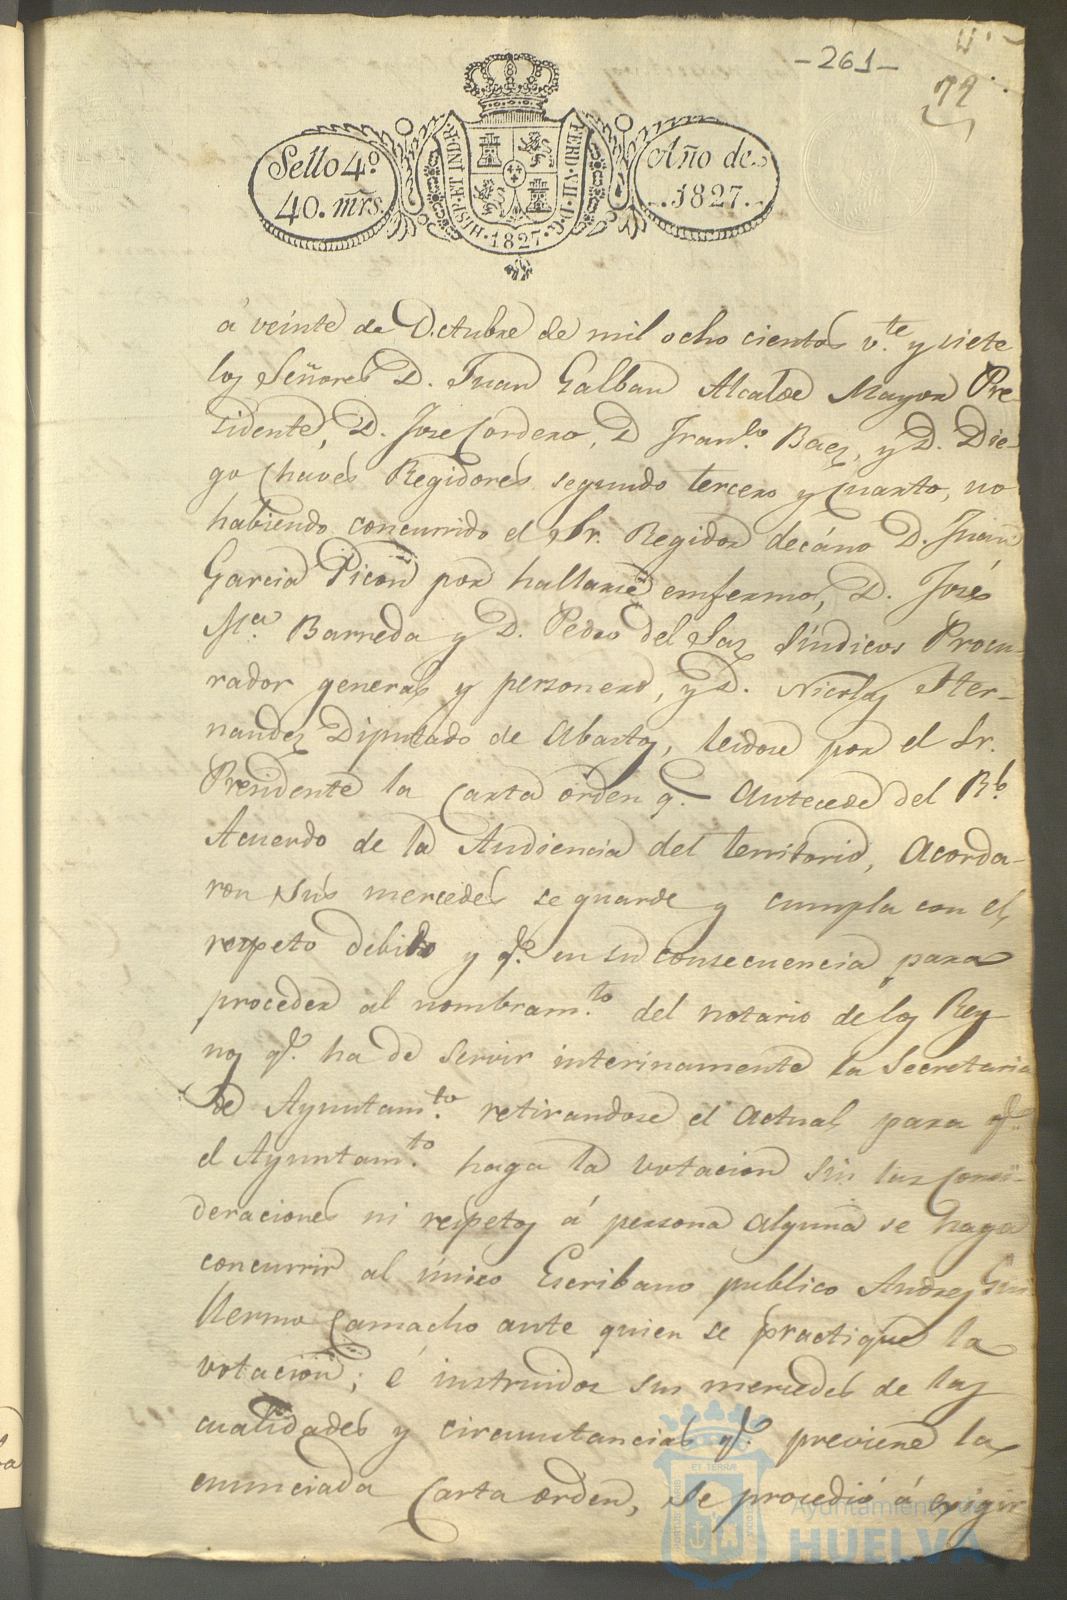 -261-
72
Sello 4º
40. mrs.
HISP. ET IND. R.
FERD. VII. D. G.
· 1827 ·
Año de
1827.
á veinte de Octubre de mil ocho cientos v.te y siete
los Señores D. Juan Galban Alcalde Mayor Pre-
sidente, D. Jose Cordero, D Fran.co Baez, y D. Die-
go Chaves Regidores segundo tercero y cuarto, no
habiendo concurrido el Sr. Regidor decáno D. Juan
Garcia Picon por hallarse emfermo, D. José
M.a Barreda y D. Pedro del Saz Síndicos Procu-
rador general y personero, y D. Nicolas Her-
nandez Diputado de Abastos, leidose por el Sr.
Presidente la Carta órden q.e antecede del R.l
Acuerdo de la Audiencia del territorio, acorda-
ron Sus mercedes se guarde y cumpla con el
respeto debido y q.e en su consecuencia para
proceder al nombram.to del notario de los Rey
nos q.e ha de servir interinamente la Secretaria
de Ayuntam.to retirandose el actual para q.e
el Ayuntam.to haga la votacion sin las consi-
deraciones ni respetos á persona alguna se haga
concurrir al único Escribano publico Andres Gui
llermo Camacho ante quien se practique la
votacion; é instruidos sus mercedes de las
cualidades y circunstancias q.e previene la
enunciada Carta orden, se procedió á exigir
Ayuntamiento de
HUELVA